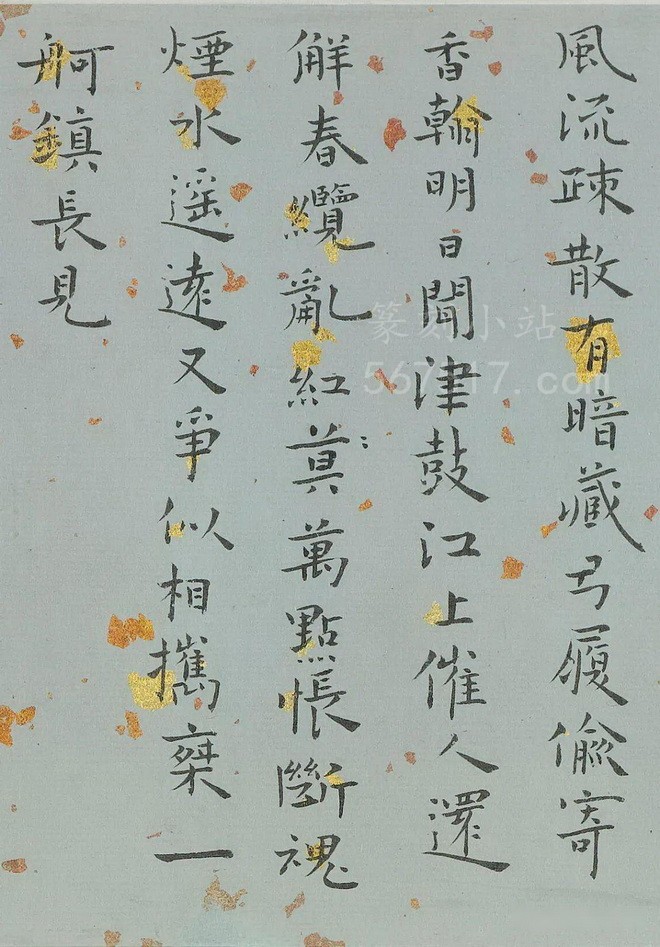 風流疎散有暗藏弓履偷寄
香翰明日聞津鼓江上催人還
觧春纜亂紅萬點悵斷魂
煙水遥遠又爭似相攜椉一
舸鎮長見
篆刻小站